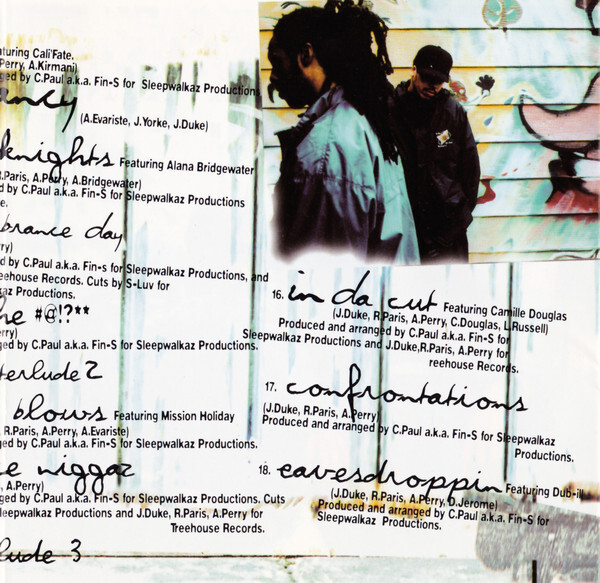 turing Cali'Fate.
Perry, A.Kirmani)
ged by C.Paul a.k.a. Fin-S for Sleepwalkaz Production
ancy
(A.Evariste, J.Yorke, J.Duke)
knights Featuring Alana Bridgewater
R.Paris, A.Perry, A.Bridgewater)
d by C.Paul a.k.a. Fin-S for Sleepwalkaz Productions
e.
brance day
ry)
d by C.Paul a.k.a. Fin-s for Sleepwalkaz Productions, and
eehouse Records. Cuts by S-Luv for
kaz Productions.
he #@!?**
erry)
ged by C.Paul a.k.a. Fin-S for Sleepwalkaz Productions.
terlude 2
blows Featuring Mission Holiday
, R.Paris, A.Perry, A.Evariste)
ged by C.Paul a.k.a. Fin-S for Sleepwalkaz Productions.
e niggaz
, A.Perry)
ged by C.Paul a.k.a. Fin-S for Sleepwalkaz Productions. Cuts
leepwalkaz Productions and J.Duke, R.Paris, A.Perry for
Treehouse Records.
lude 3
16. in da cut Featuring Camille Douglas
(J.Duke, R.Paris, A.Perry, C.Douglas, L.Russell)
Produced and arranged by C.Paul a.k.a. Fin-S for
Sleepwalkaz Productions and J.Duke,R.Paris, A.Perry for
reehouse Records.
17. confrontations
(J.Duke, R.Paris, A.Perry)
Produced and arranged by C.Paul a.k.a. Fin-S for Sleepwalkaz
Productions.
18. eavesdroppin Featuring Dub-ill
(J.Duke, R.Paris, A.Perry, D.Jerome)
Produced and arranged by C.Paul a.k.a. Fin-S for
Sleepwalkaz Productions.